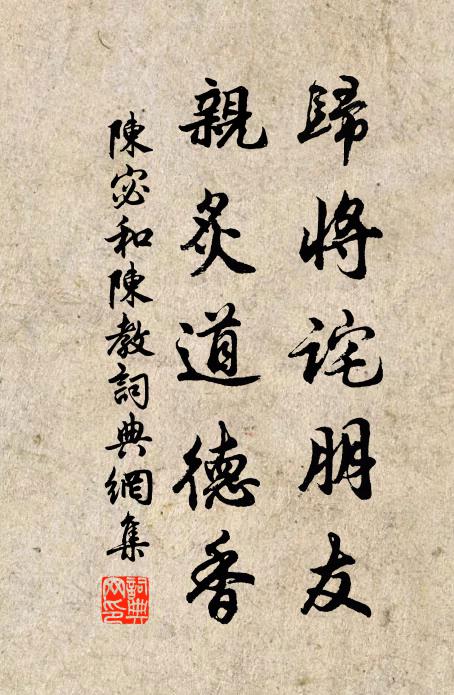 歸將詫朋友
親炙道德香
陳宓和陳教詞典網集
詞典
网印